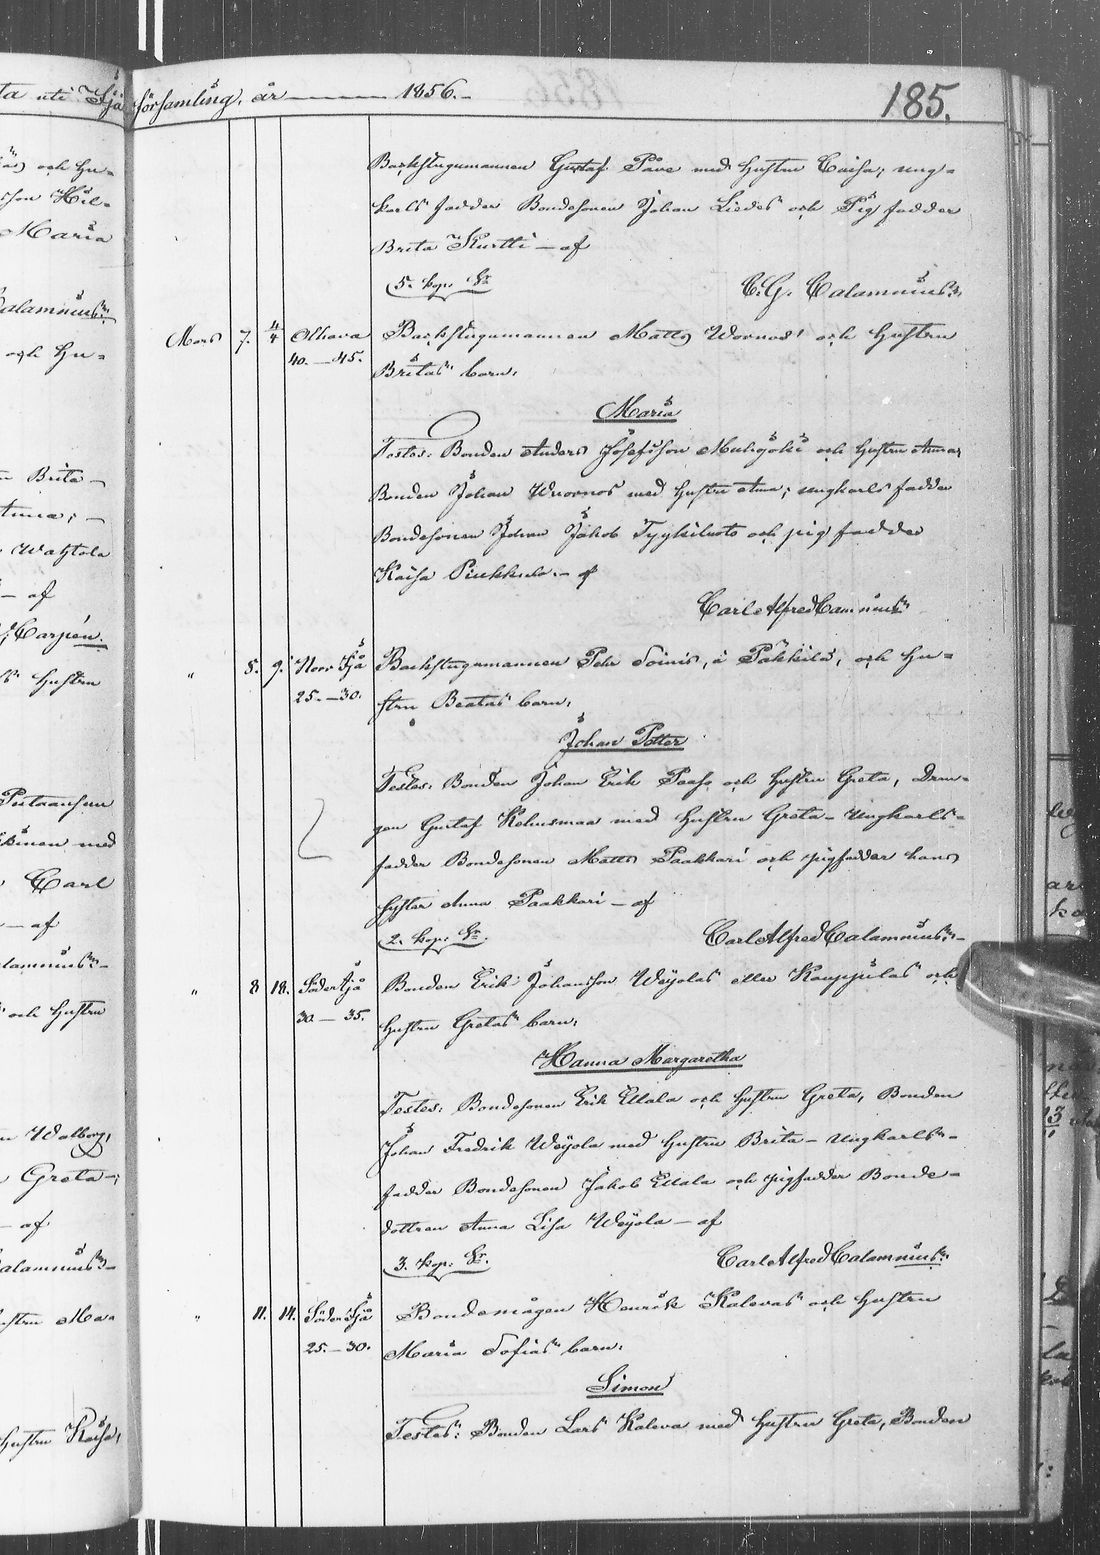 församling, år — 1856.— 185.
Backstugumannen Gustaf Pave med hustru Caisa; ung-
karls fadder Bondesonen Johan Liedes och Pigfadder
Brita Kurtti — af
5. kop. Sr. C. G. Calamnius.
Mars 7. 4/4 Olhava Backstugumannen Matts Wornos' och hustru
40.—45. Britas barn:
Maria
Testes: Bonden Anders Josefsson Muhojoki och hustru Anna,
Bonden Johan Wuornos med hustru Anna; ungkarls fadder
Bondesonen Johan Jakob Tyykiluoto och pigfadder
Kaisa Piukkula.— af
Carl Alfred Camnius
" 5. 9. Norr Ijå Backstugumannen Pehr Soinis, å Pakkila, och hu-
25.—30. strun Beatas barn:
Johan Petter
Testes: Bonden Johan Erik Paaso och hustru Greta, Dren-
gen Gustaf Kehusmaa med hustru Greta — Ungkarls-
fadder Bondesonen Matts Paakkari och pigfadder hans
syster Anna Paakkari — af
2. kop. Sr. Carl Alfred Calamnius.—
" 8 18. Söder Ijå Bonden Erik Johansson Weijolas eller Kauppilas och
30 — 35. hustru Gretas barn:
Hanna Margaretha
Testes: Bondesonen Erik Ellala och hustru Greta, Bonden
Johan Fredrik Weijola med hustru Brita — Ungkarls-
fadder Bondesonen Jakob Ellala och pigfadder Bonde-
dottren Anna Lisa Weijola — af
3. kop. Sr. Carl Alfred Calamnius.
" 11. 14. Söder Ijå Bondemågen Henrik Kalevas och hustru
25.—30. Maria Sofias barn:
Simon
Testes: Bonden Lars Kaleva med hustru Greta, Bonden